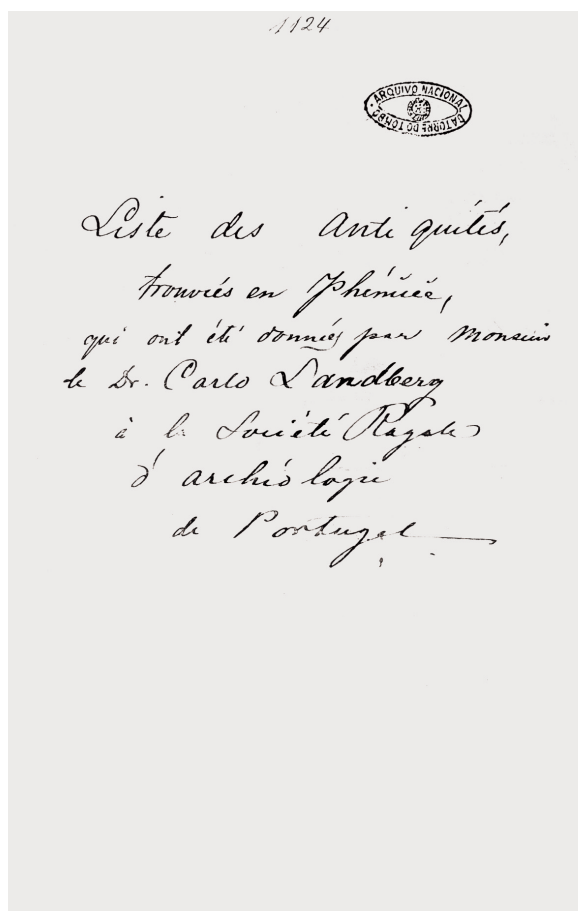 1124
ARQUIVO NACIONAL DA TORRE DO TOMBO
Liste des Antiquités,
trouvées en Phénicie,
qui ont été données par Monsieur
le Dr. Carlo Landberg
à la Société Royale
d'archéologie
de Portugal